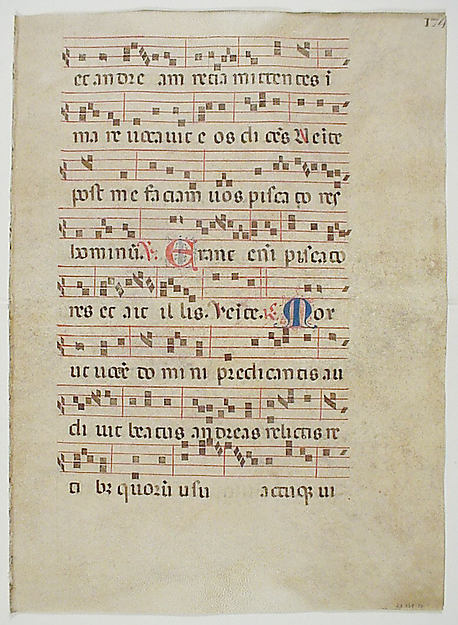 et andre am retia mittentes i
ma re vocavit e os di cēs Ueite
post me faciam uos pisca to res
hominū. V. Erant eni piscato
res et ait il lis. Ueite. R. Mox
ut uocē do mi ni predicantis au
di uit beatus andreas relictis re
ti bꝫ quorū usu actuqꝫ ui